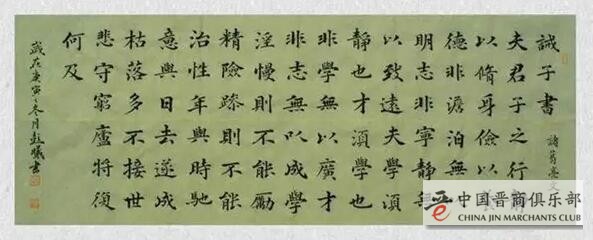 誡子書
諸葛亮文
夫君子之行靜
以脩身儉以
德非澹泊無
明志非寧靜無
以致遠夫學須
靜也才須學也
非學無以廣才
非志無以成學
淫慢則不能勵
精險躁則不能
治性年與時馳
意與日去遂成
枯落多不接世
悲守窮廬將復
何及
歲在庚寅冬月書
中国晋商俱乐部
CHINA JIN MARCHANTS CLUB